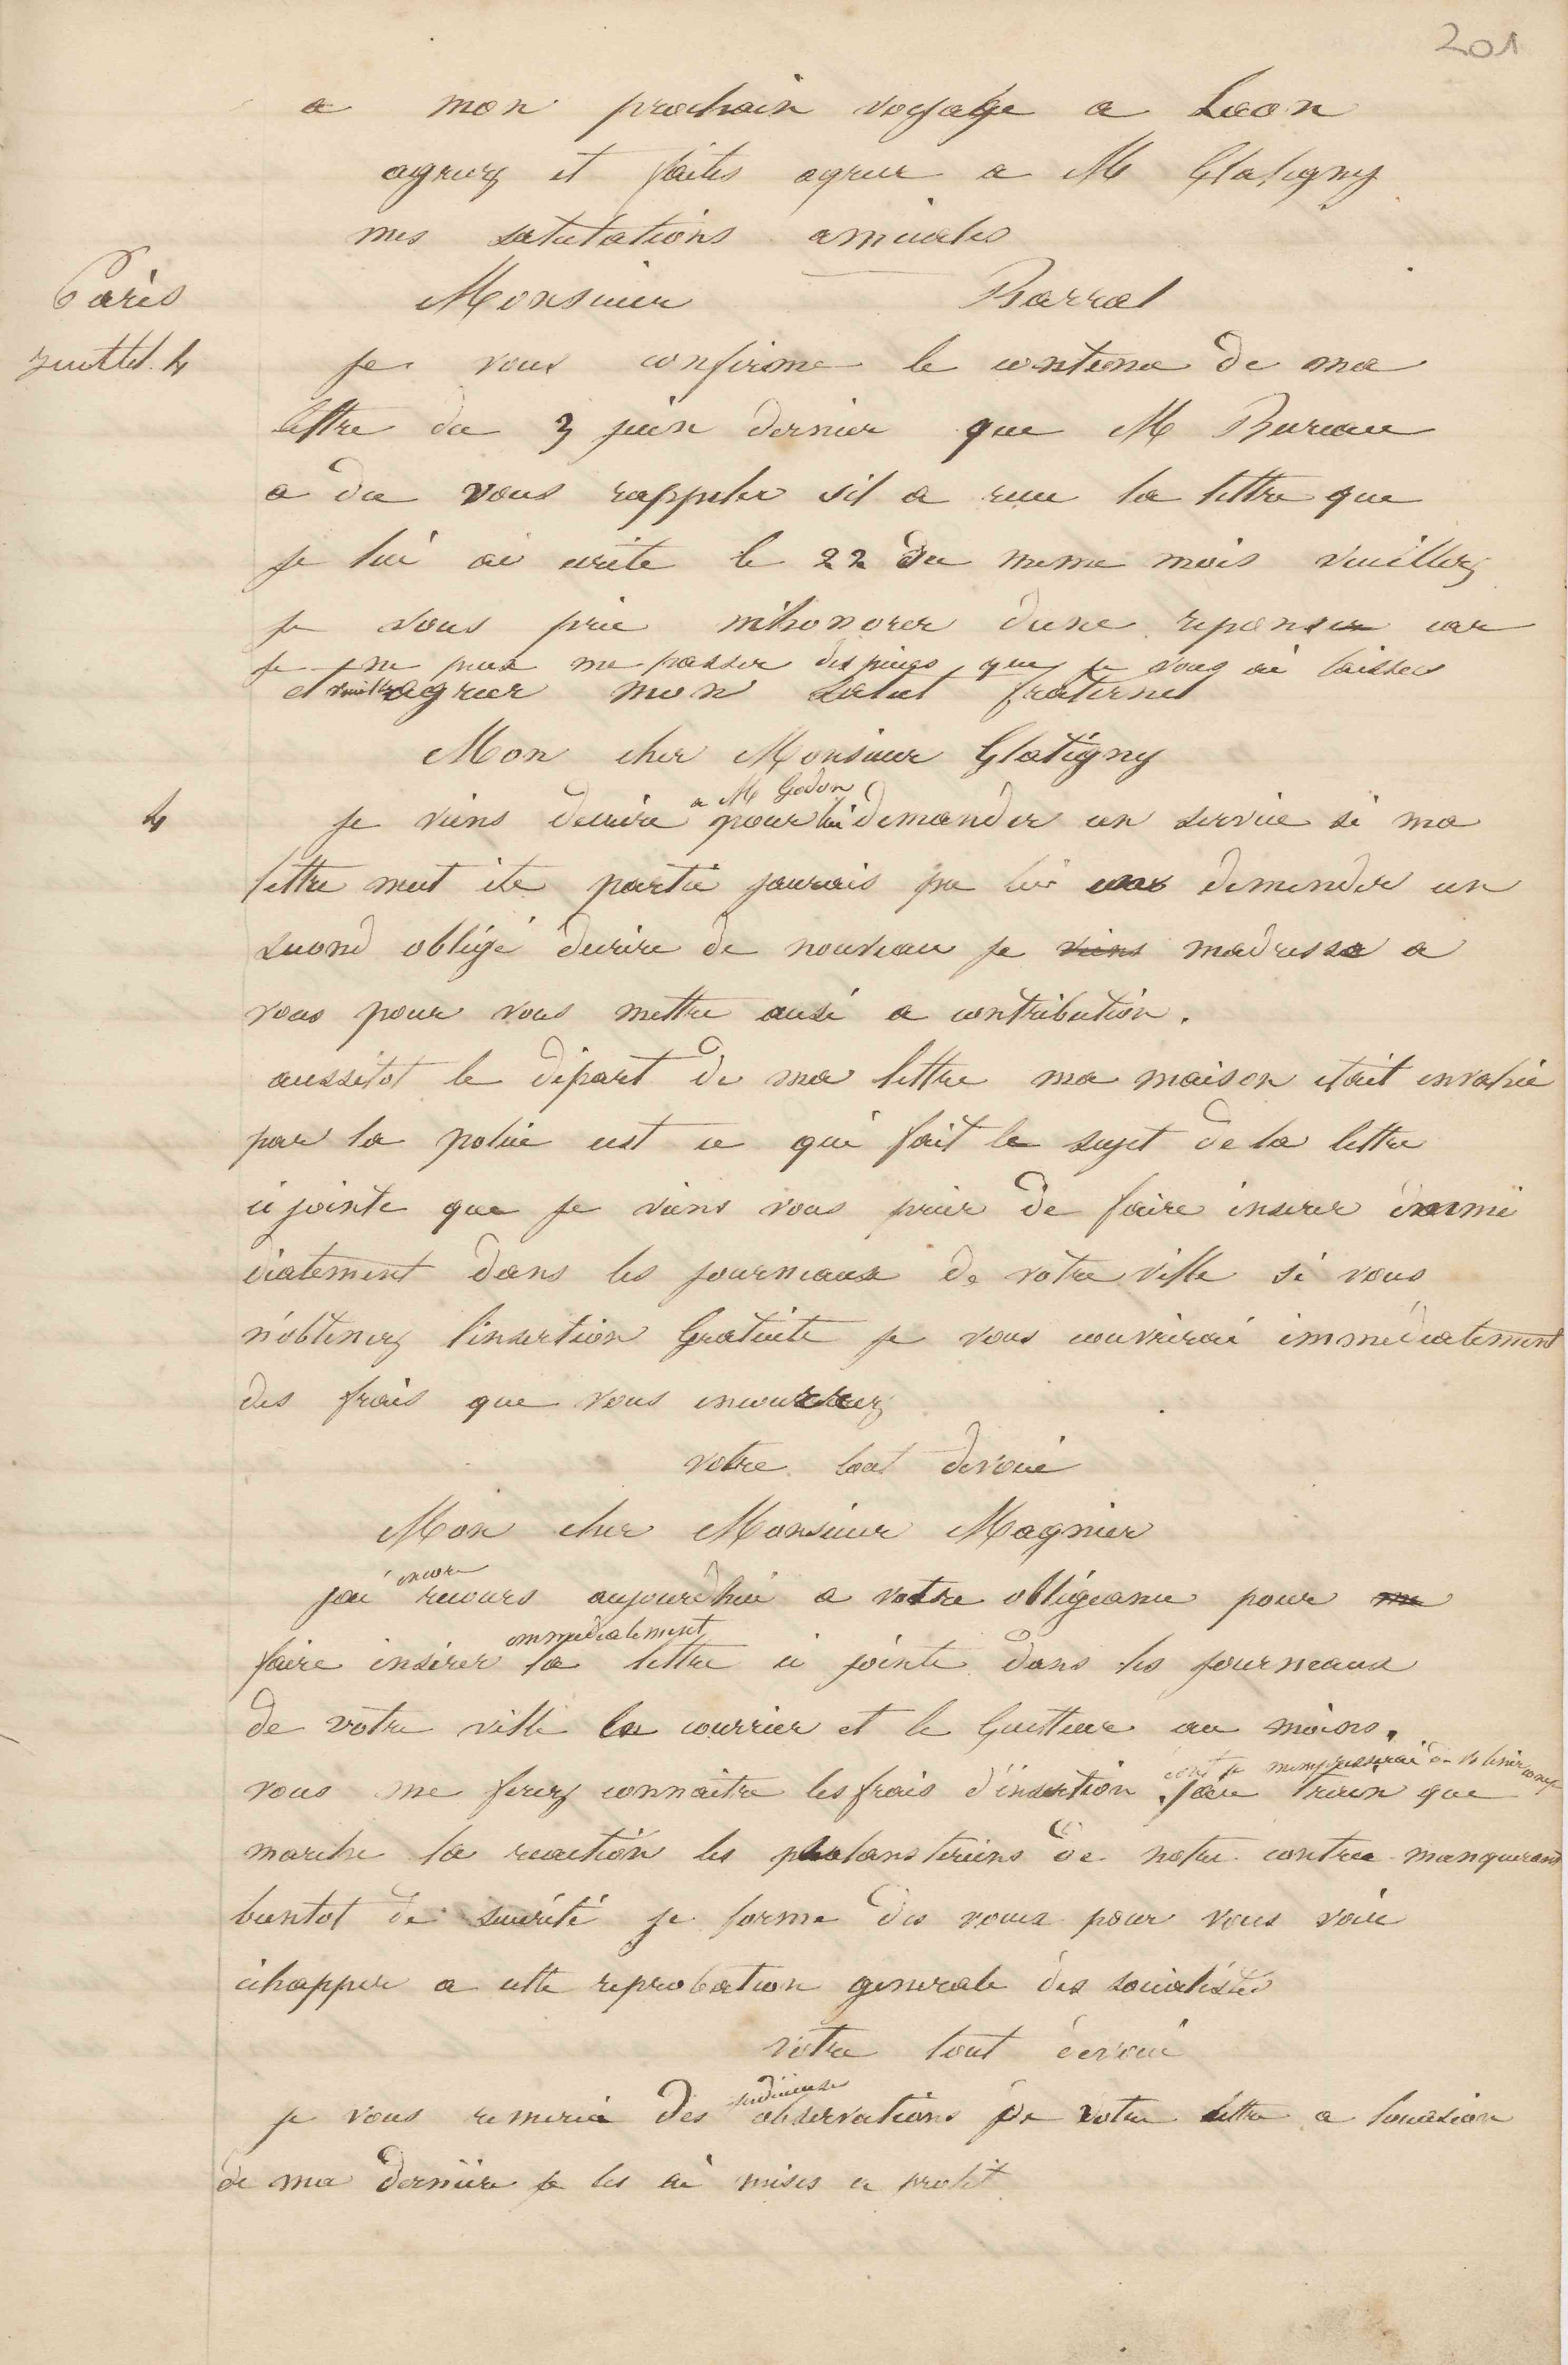 201
a mon prochain voyage a Laon
agreez et faites agreer a M Glatigny
mes salutations amicales
Paris
Monsieur Barral
juillet 4
je vous confirme le contenu de ma
lettre du 3 juin dernier que M Bureau
a du vous rappeler sil a recu la lettre que
je lui ai ecrite le 22 du meme mois veuillez
je vous prie m'honorer dune reponse car
je ne puis me passer des pieces que je vous ai laissees
et veuillez agreer mon salut fraternel
Mon cher Monsieur Glatigny
a M Godon
4
je viens decrire pour lui demander un service si ma
lettre neut ete partie jaurais pu lui en demander un
second obligé decrire de nouveau je viens madresse a
vous pour vous mettre ausi a contribution.
aussitot le départ de ma lettre ma maison etait envahie
par la police cest ce qui fait le sujet de la lettre
ci jointe que je viens vous prier de faire inserer immé
diatement dans les journeaux de votre ville si vous
n'obtenez l'insertion Gratuite je vous couvrirai immédiatement
des frais que vous encourrez
votre tout devoué
Mon cher Monsieur Magnier
encore
jai recours aujourdhui a votre obligeance pour me
immediatement
faire insérer la lettre ci jointe dans les journeaux
de votre ville le courrier et le Guetteur au moins.
dont je mempresserai de v tenir compte
vous me ferez connaitre les frais d'insertion. au train que
marche la reaction les phalansteriens de notre contree manqueront
bientot de sécurité je forme des voeux pour vous voir
échapper a cette reprobation generale des socialistes
votre tout devoué
judicieuses
je vous remercie des observations de votre lettre a locasion
de ma derniere je les ai mises a profit